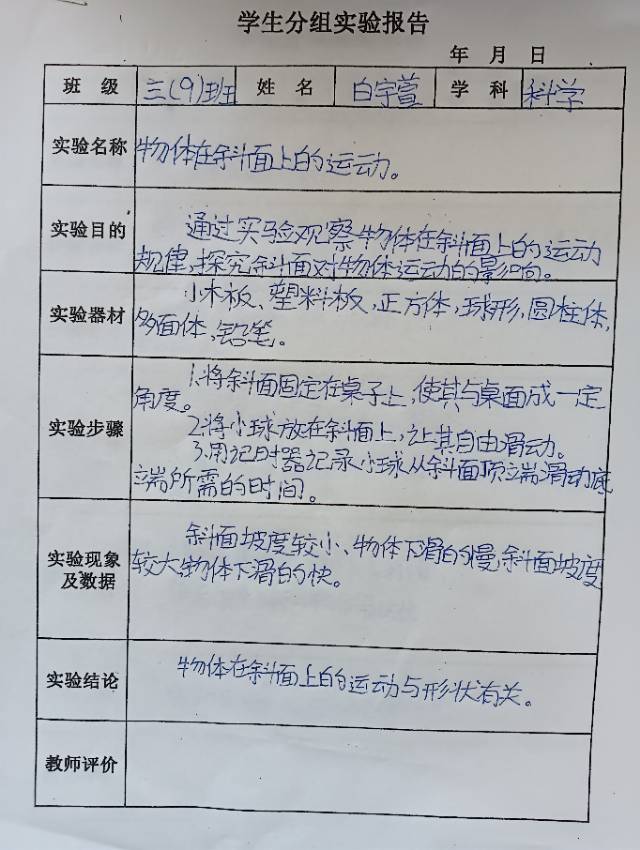 学生分组实验报告
年 月 日
班 级 三(9)班 姓 名 白宇萱 学 科 科学
实验名称 物体在斜面上的运动。
实验目的 通过实验观察物体在斜面上的运动
规律,探究斜面对物体运动的影响。
实验器材 小木板、塑料板,正方体,球形,圆柱体,
多面体,铅笔。
实验步骤 1.将斜面固定在桌子上,使其与桌面成一定
角度。
2.将小球放在斜面上,让其自由滑动。
3.用记时器记录小球从斜面顶端滑动底
端所需的时间。
实验现象
及数据
斜面坡度较小、物体下滑的慢,斜面坡度
较大物体下滑的快。
实验结论 物体在斜面上的运动与形状有关。
教师评价